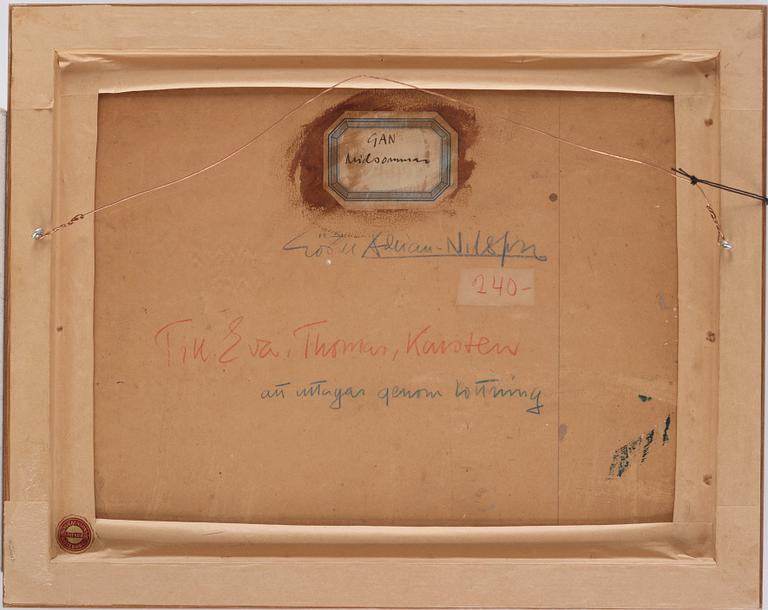 GAN
Midsommar
Gösta Adrian-Nilsson
240-
Till Eva, Thomas, Karsten
att uttagas genom lottning